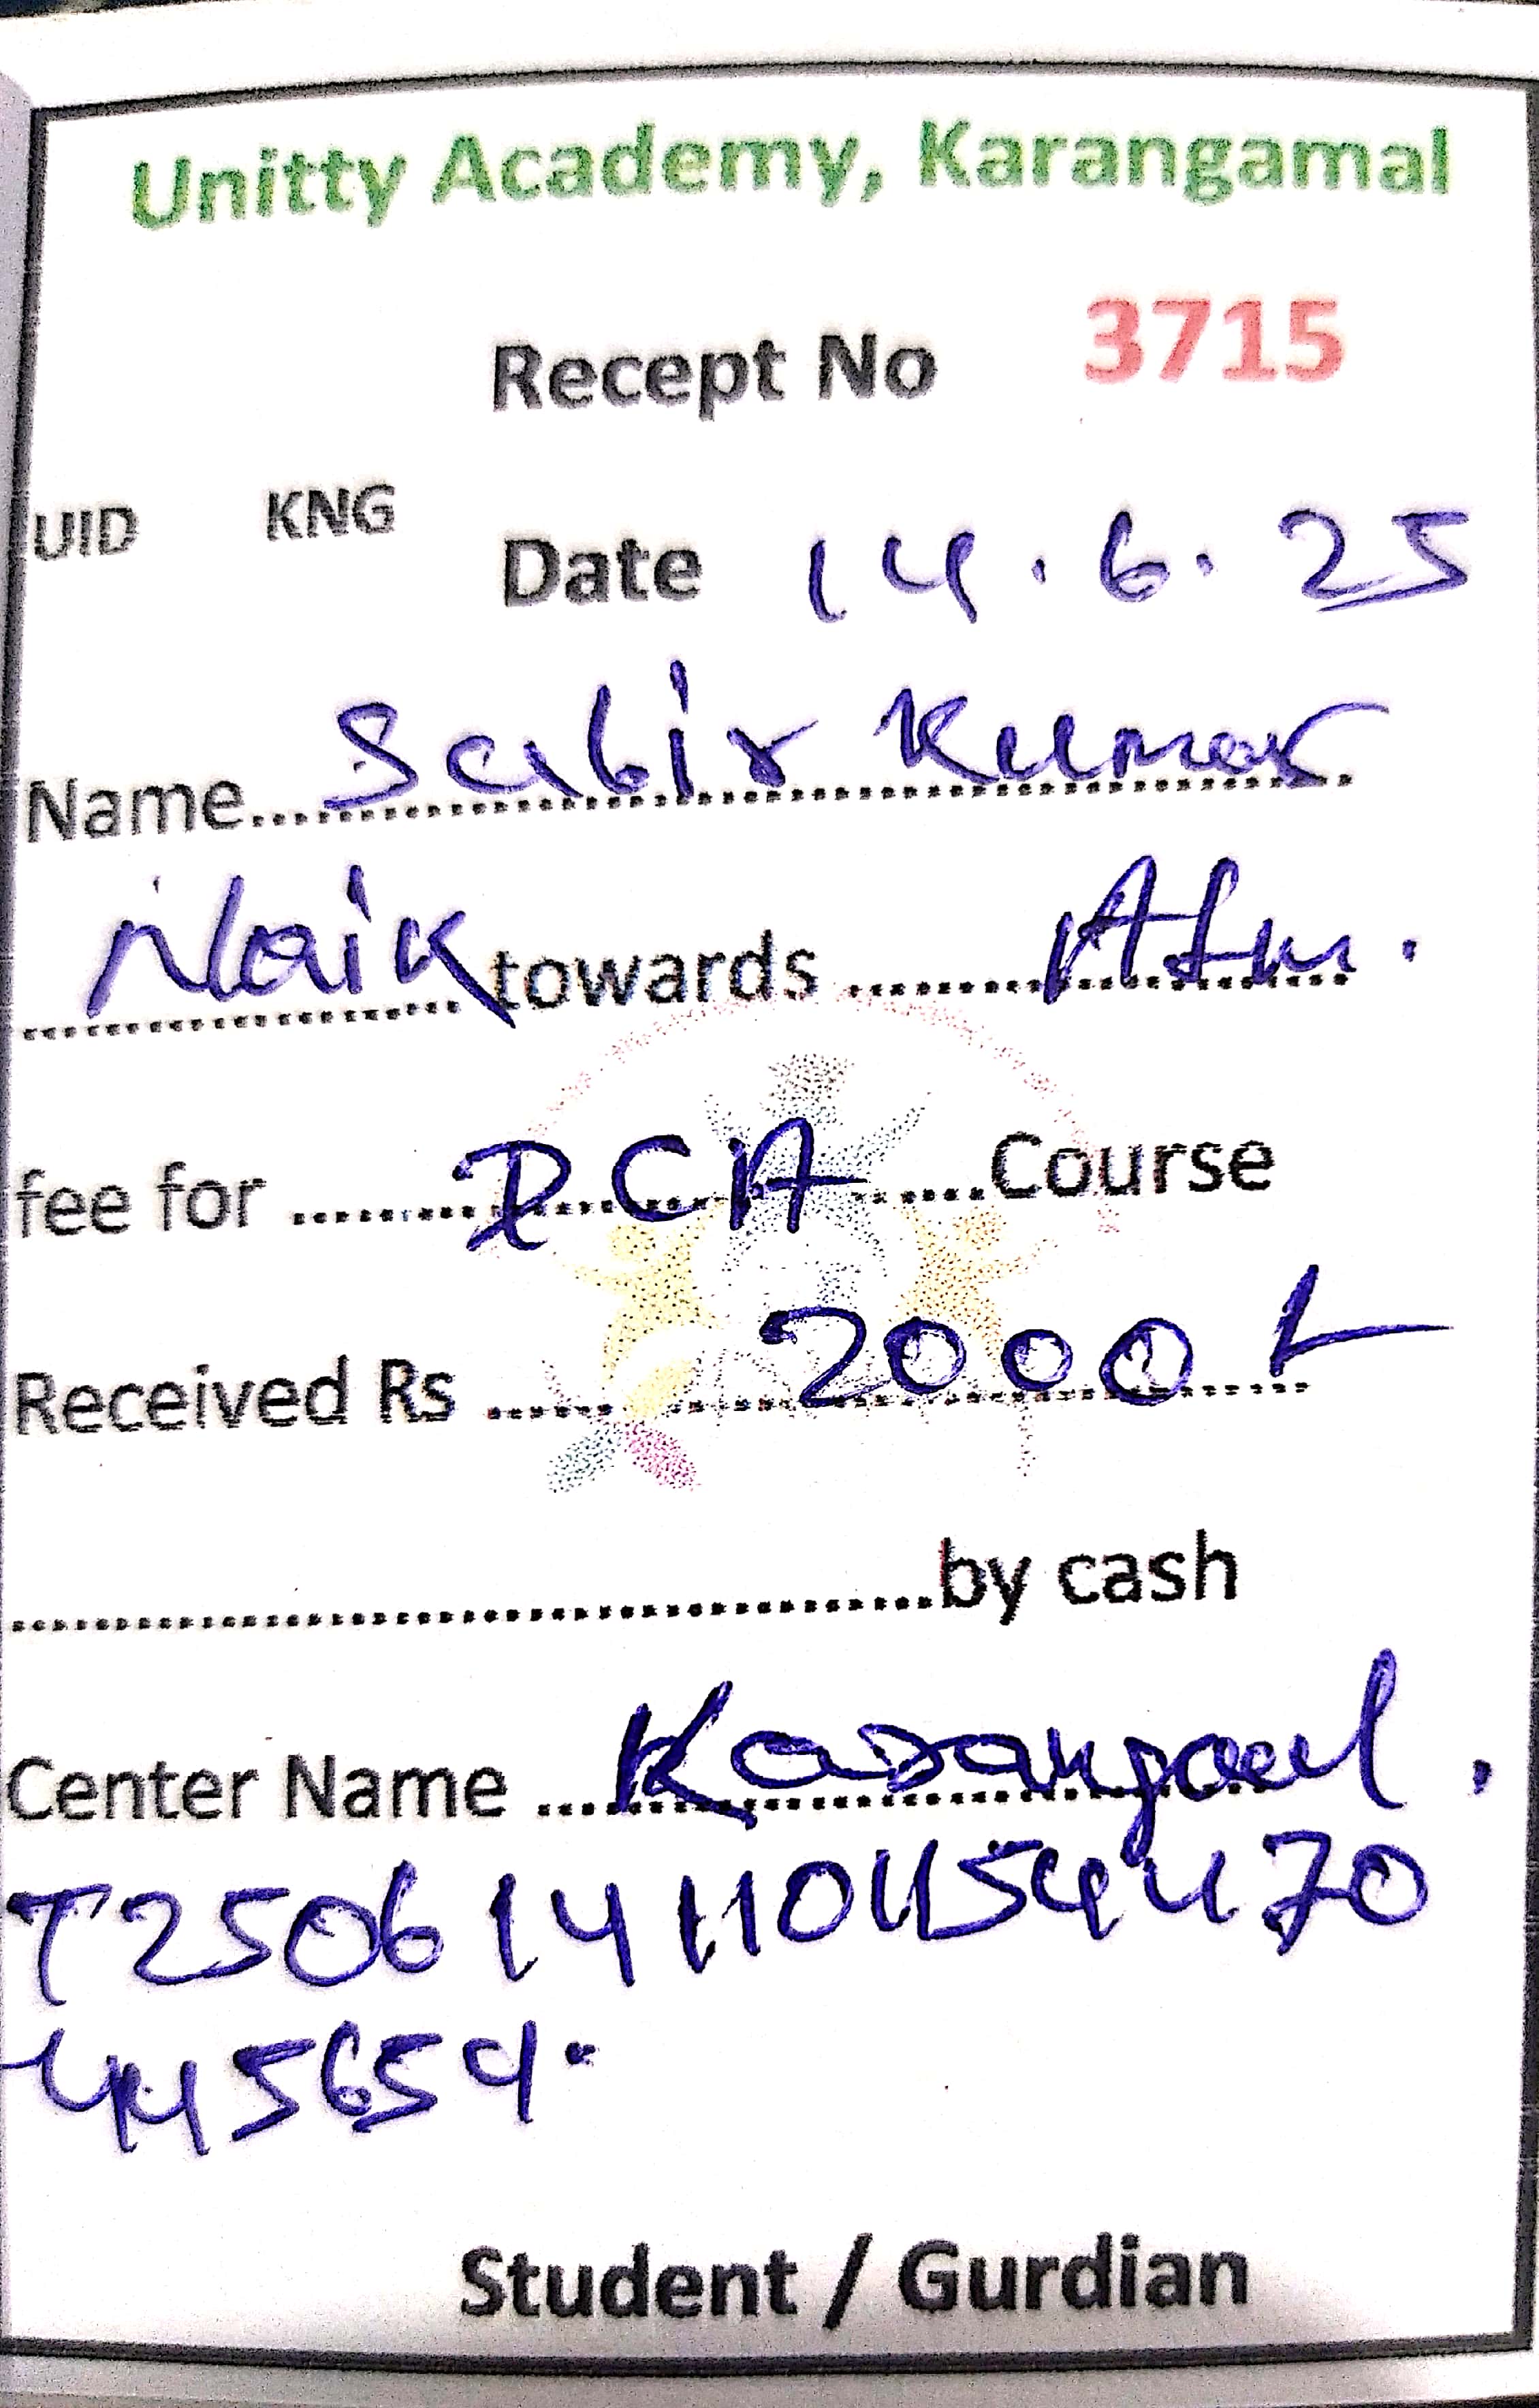 Unitty Academy, Karangamal
Recept No 3715
UID KNG Date 14.6.25
Name Sabir Kumar
Naik towards Afm.
fee for DCA Course
Received Rs 2000/-
by cash
Center Name
T2506141101154470
445654.
Student / Gurdian